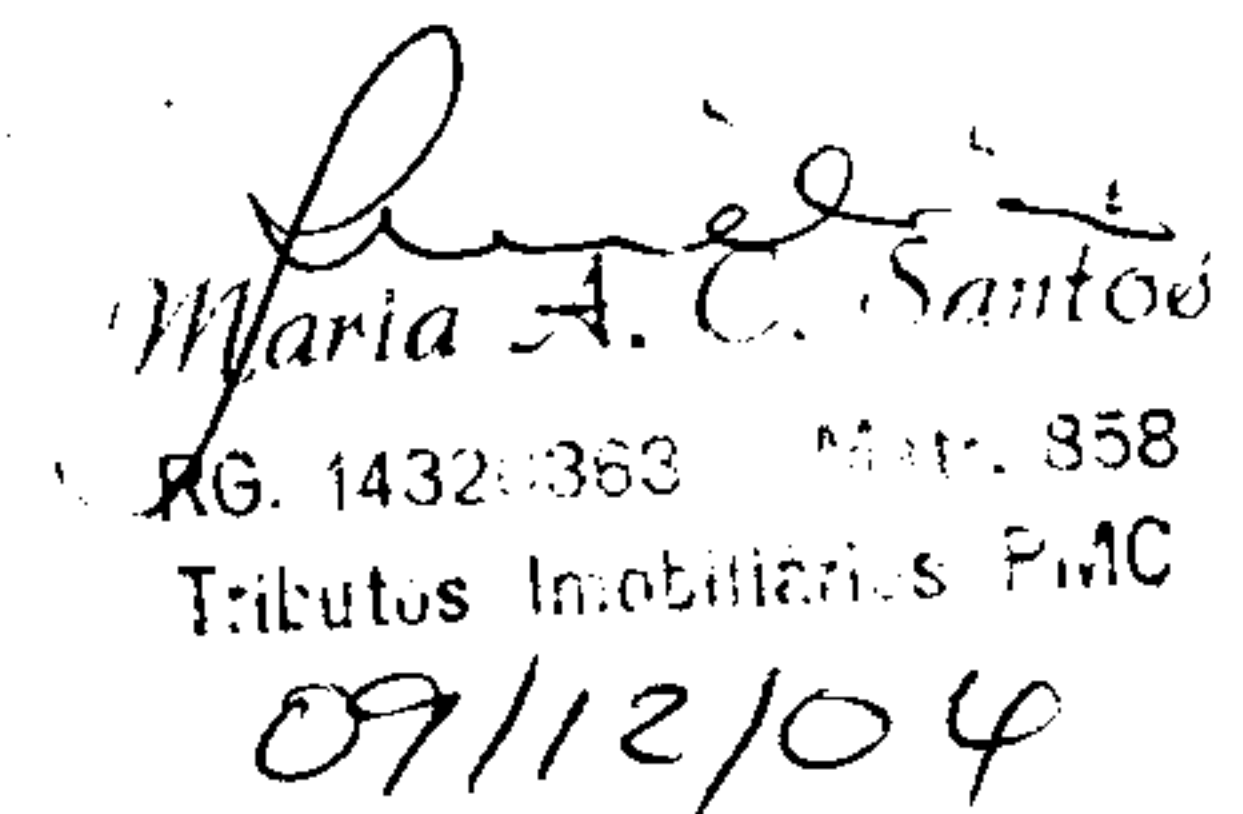 Maria A. C. Santos
RG. Matr. 858
Tributos Imobiliários PMC
09/12/04